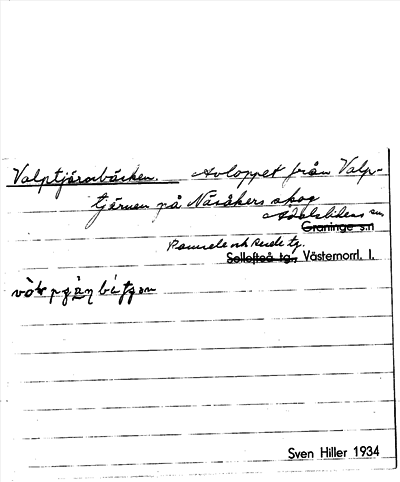 Valptjärnbäcken. Avloppet från Valp-
tjärnen på Näsåkers skog
Ådalslidens sn
Graninge s:n
Ramsele och Resele tg.
Sollefteå tg., Västernorrl. l.
Sven Hiller 1934